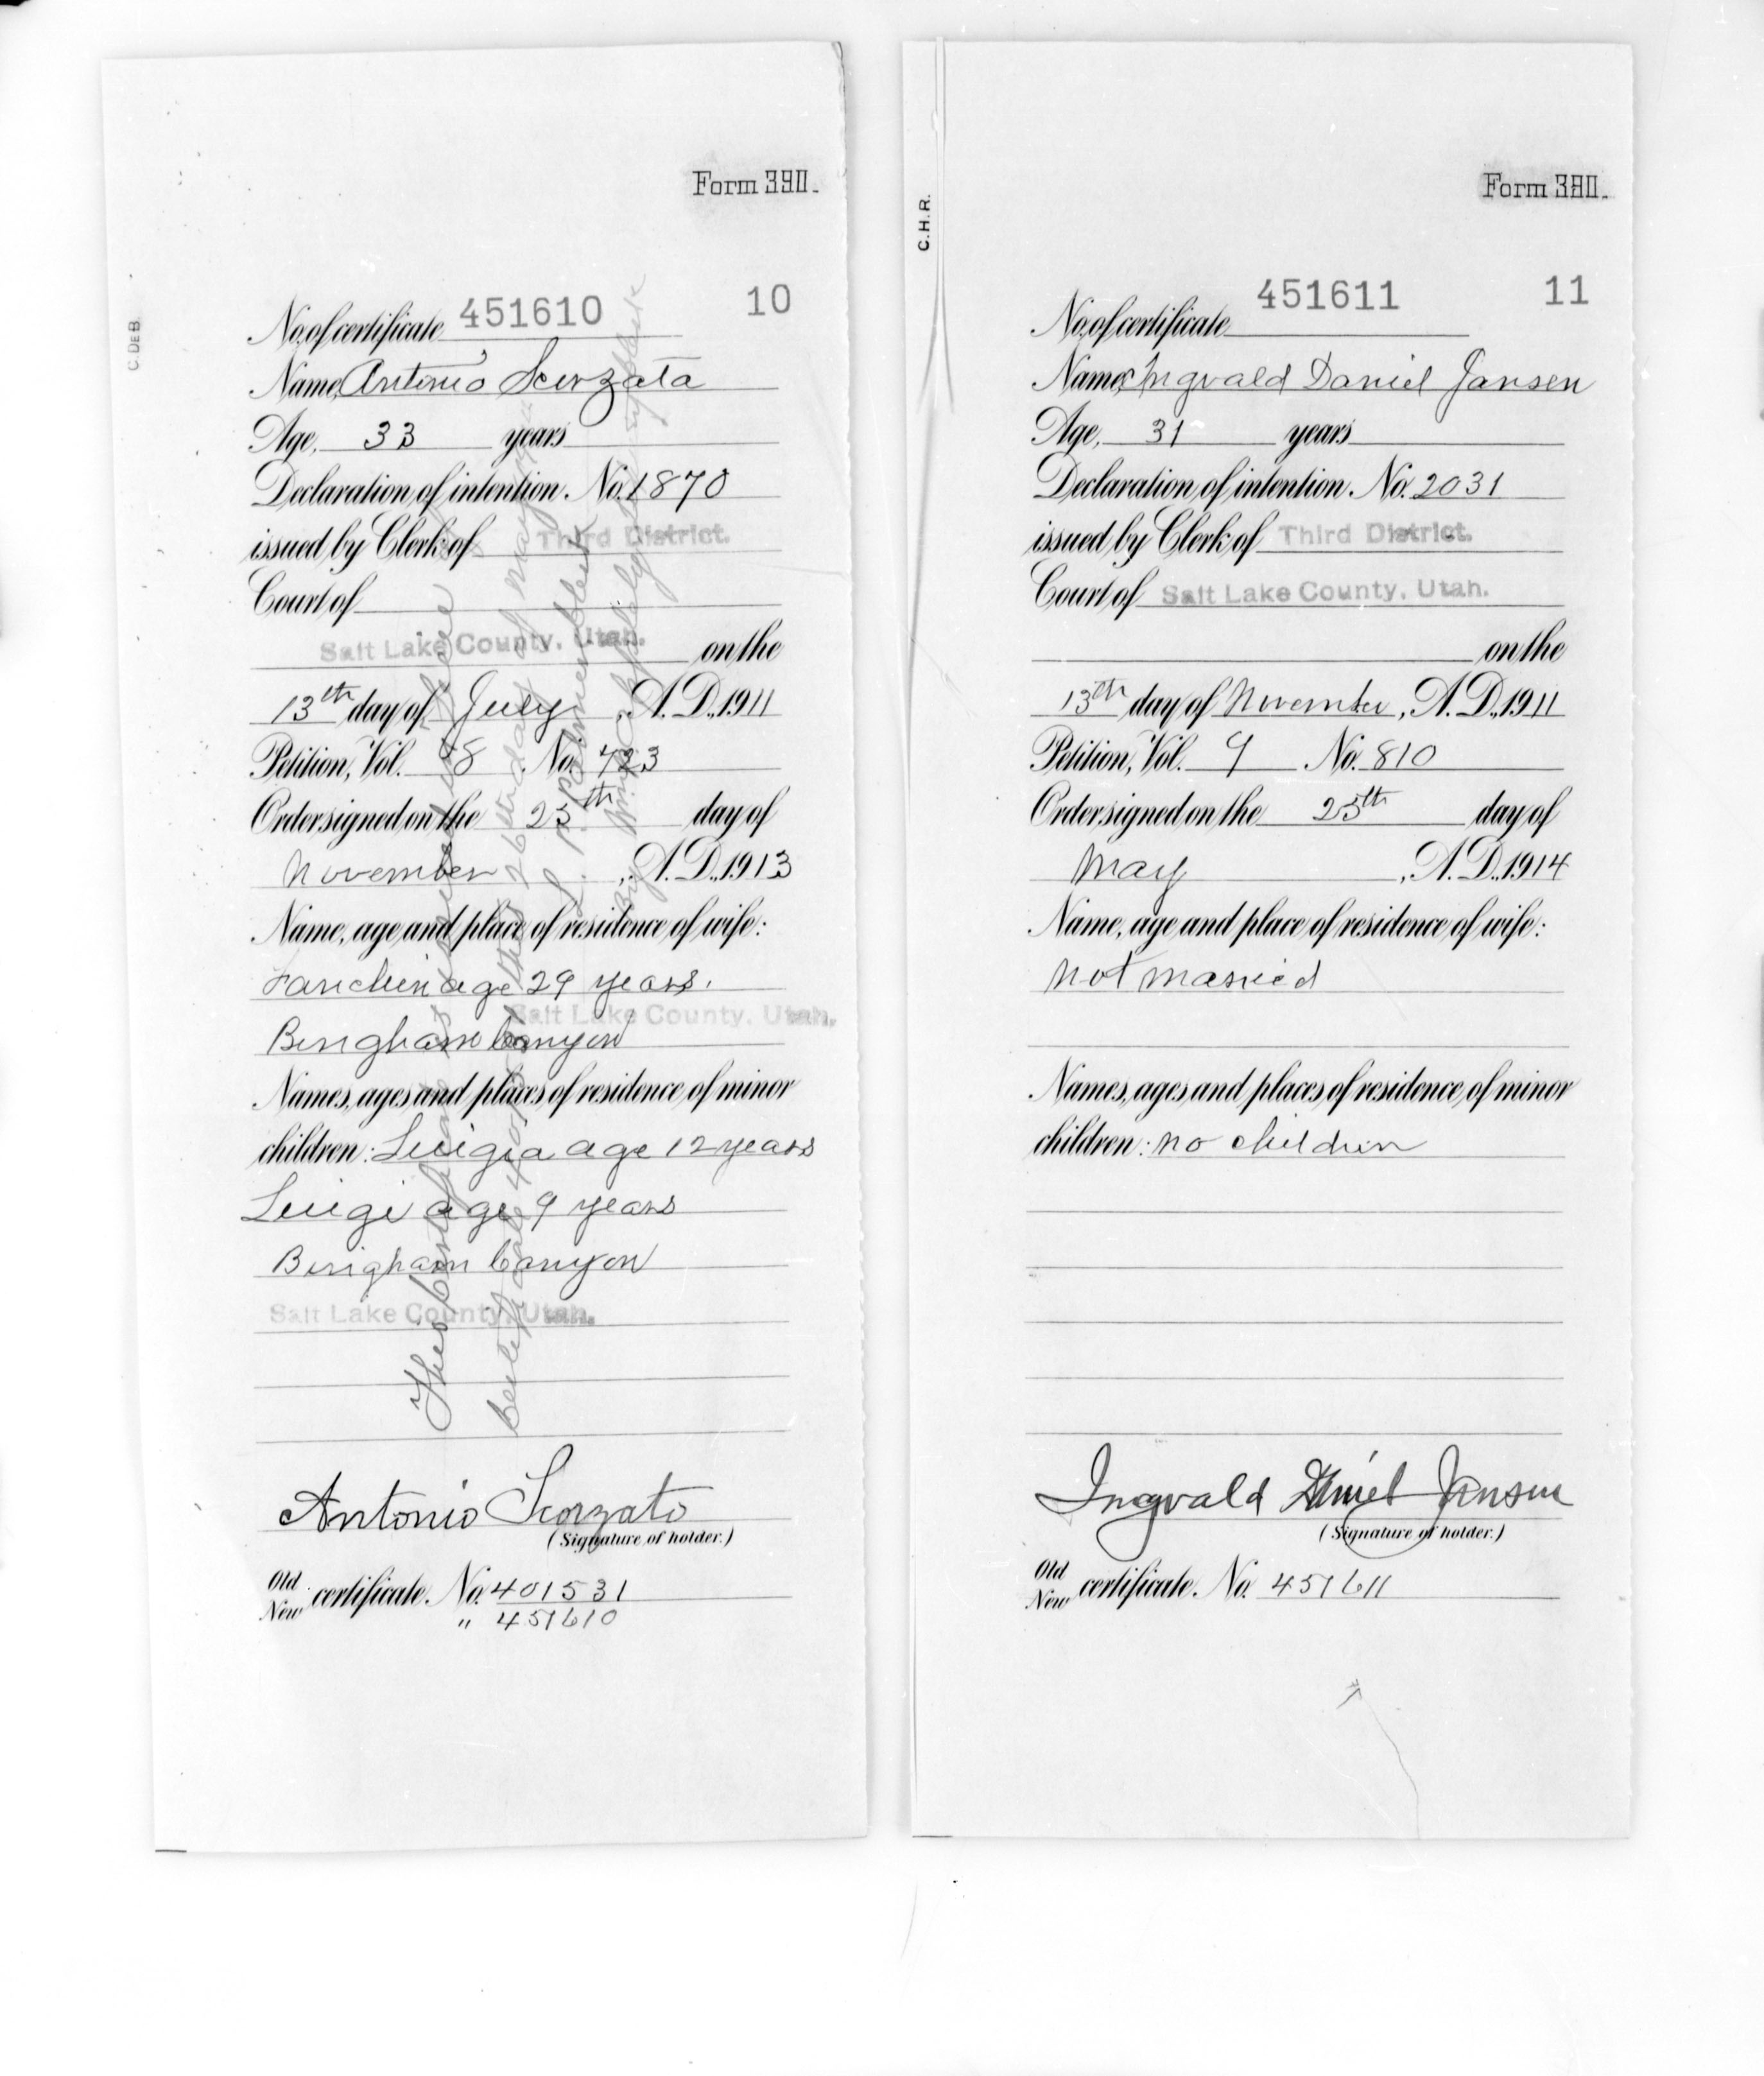 Form 390.
C. DEB.
10
No. of certificate 451610
Name, Antonio Scorzata
Age, 33 years
Declaration of intention. No. 1870
issued by Clerk of Third District.
Court of
Salt Lake County, Utah. on the
13th day of July, A. D., 1911
Petition, Vol. 8 No. 423
Order signed on the 25th day of
November, A. D., 1913
Name, age and place of residence of wife:
age 29 years.
Salt Lake County, Utah.
Bingham Canyon
Names, ages and places of residence of minor
children: Luigia age 12 years
Luigi age 9 years
Bingham Canyon
Salt Lake County, Utah.
Antonio Scorzato
(Signature of holder.)
Old
New certificate. No. 401531
" 451610
This
26th day of May
Form 390.
C.H.R.
11
No. of certificate 451611
Name, Ingvald Daniel Jansen
Age, 31 years
Declaration of intention. No. 2031
issued by Clerk of Third District.
Court of Salt Lake County, Utah.
on the
13th day of November, A. D., 1911
Petition, Vol. 9 No. 810
Order signed on the 25th day of
May, A. D., 1914
Name, age and place of residence of wife:
not married
Names, ages and places of residence of minor
children: no children
Ingvald Daniel Jansen
(Signature of holder.)
Old
New certificate. No. 451611